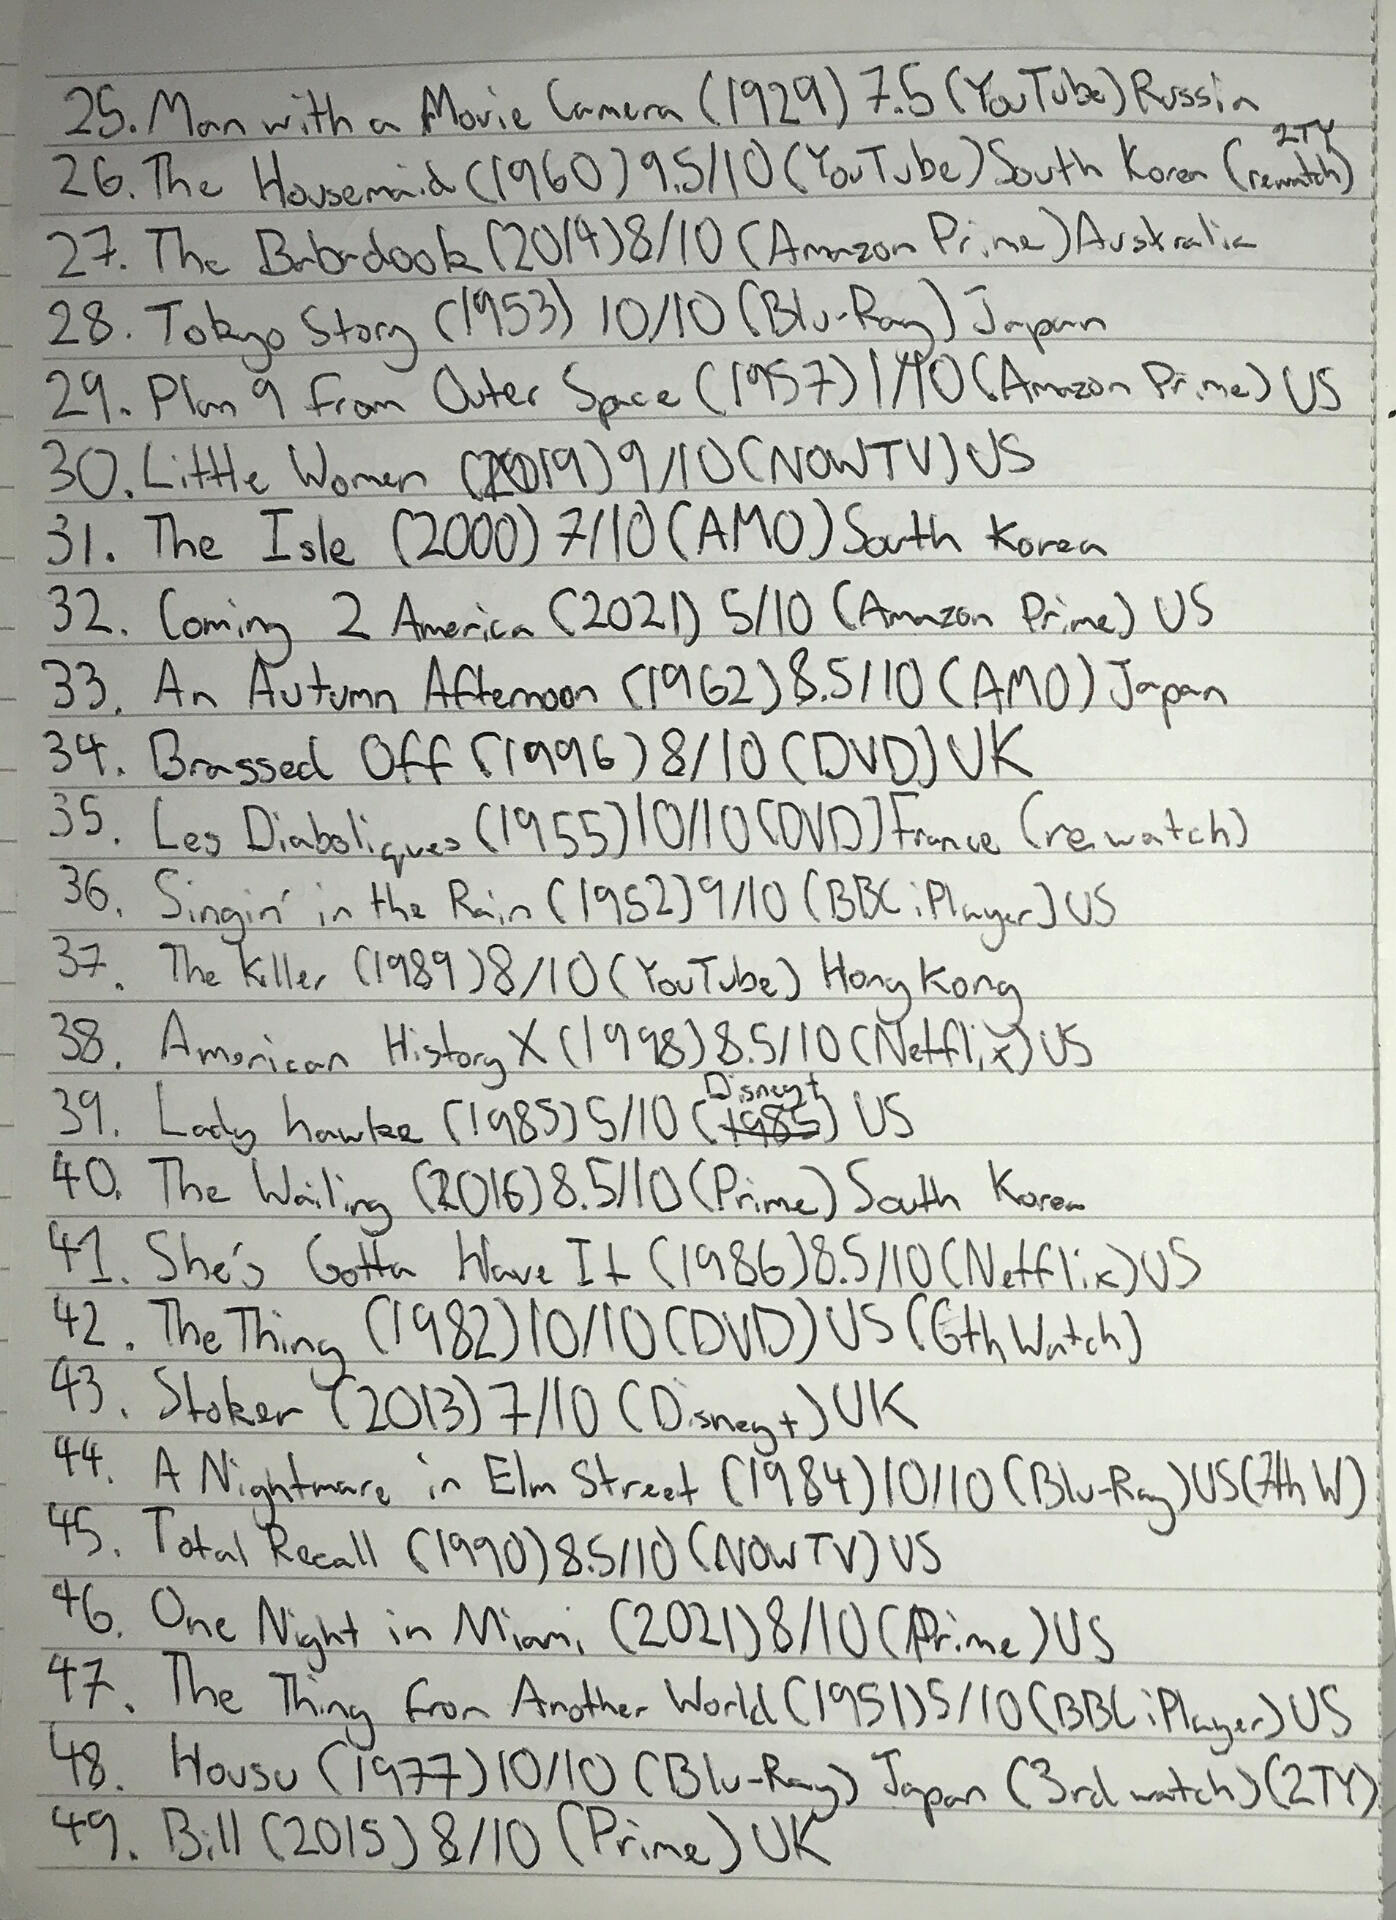 25. Man with a Movie Camera (1929) 7.5 (YouTube) Russia
26. The Housemaid (1960) 9.5/10 (YouTube) South Korea (2TY rewatch)
27. The Babadook (2014) 8/10 (Amazon Prime) Australia
28. Tokyo Story (1953) 10/10 (Blu-Ray) Japan
29. Plan 9 from Outer Space (1957) 1/10 (Amazon Prime) US
30. Little Women (2019) 9/10 (NOWTV) US
31. The Isle (2000) 7/10 (AMO) South Korea
32. Coming 2 America (2021) 5/10 (Amazon Prime) US
33. An Autumn Afternoon (1962) 8.5/10 (AMO) Japan
34. Brassed Off (1996) 8/10 (DVD) UK
35. Les Diaboliques (1955) 10/10 (DVD) France (rewatch)
36. Singin' in the Rain (1952) 9/10 (BBC iPlayer) US
37. The Killer (1989) 8/10 (YouTube) Hong Kong
38. American History X (1998) 8.5/10 (Netflix) US
39. Lady hawke (1985) 5/10 (Disney+) US
40. The Wailing (2016) 8.5/10 (Prime) South Korea
41. She's Gotta Have It (1986) 8.5/10 (Netflix) US
42. The Thing (1982) 10/10 (DVD) US (6th Watch)
43. Stoker (2013) 7/10 (Disney+) UK
44. A Nightmare in Elm Street (1984) 10/10 (Blu-Ray) US (7th W)
45. Total Recall (1990) 8.5/10 (NOWTV) US
46. One Night in Miami (2021) 8/10 (Prime) US
47. The Thing from Another World (1951) 5/10 (BBC iPlayer) US
48. Housu (1977) 10/10 (Blu-Ray) Japan (3rd watch) (2TY)
49. Bill (2015) 8/10 (Prime) UK